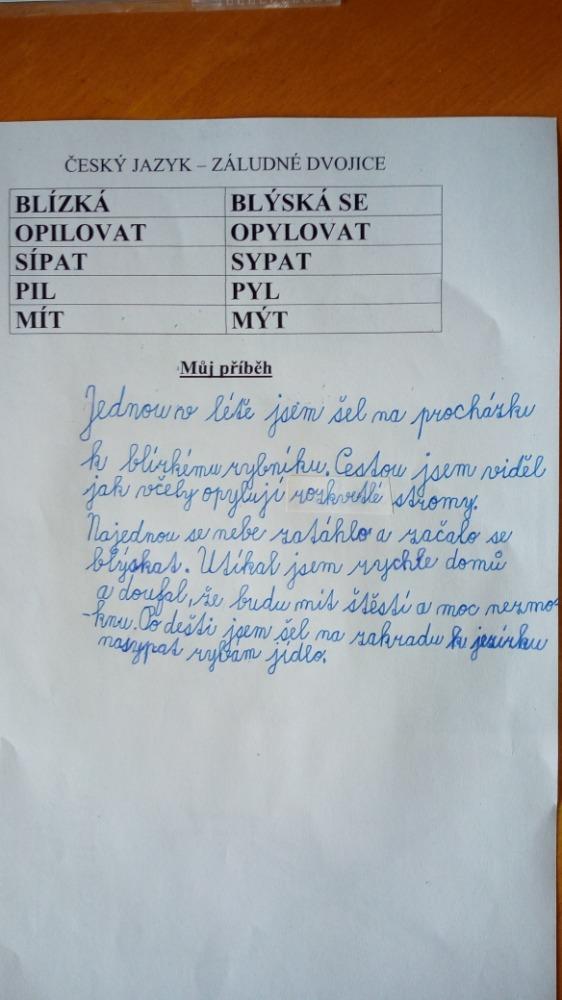 ČESKÝ JAZYK – ZÁLUDNÉ DVOJICE
BLÍZKÁ BLÝSKÁ SE
OPILOVAT OPYLOVAT
SÍPAT SYPAT
PIL PYL
MÍT MÝT
Můj příběh
Jednou v létě jsem šel na procházku
k blízkému rybníku. Cestou jsem viděl
jak včely opylují rozkvetlé stromy.
Najednou se nebe zatáhlo a začalo se
blýskat. Utíkal jsem rychle domů
a doufal, že budu mít štěstí a moc nezmo-
-knu. Po dešti jsem šel na zahradu k jezírku
nasypat rybám jídlo.